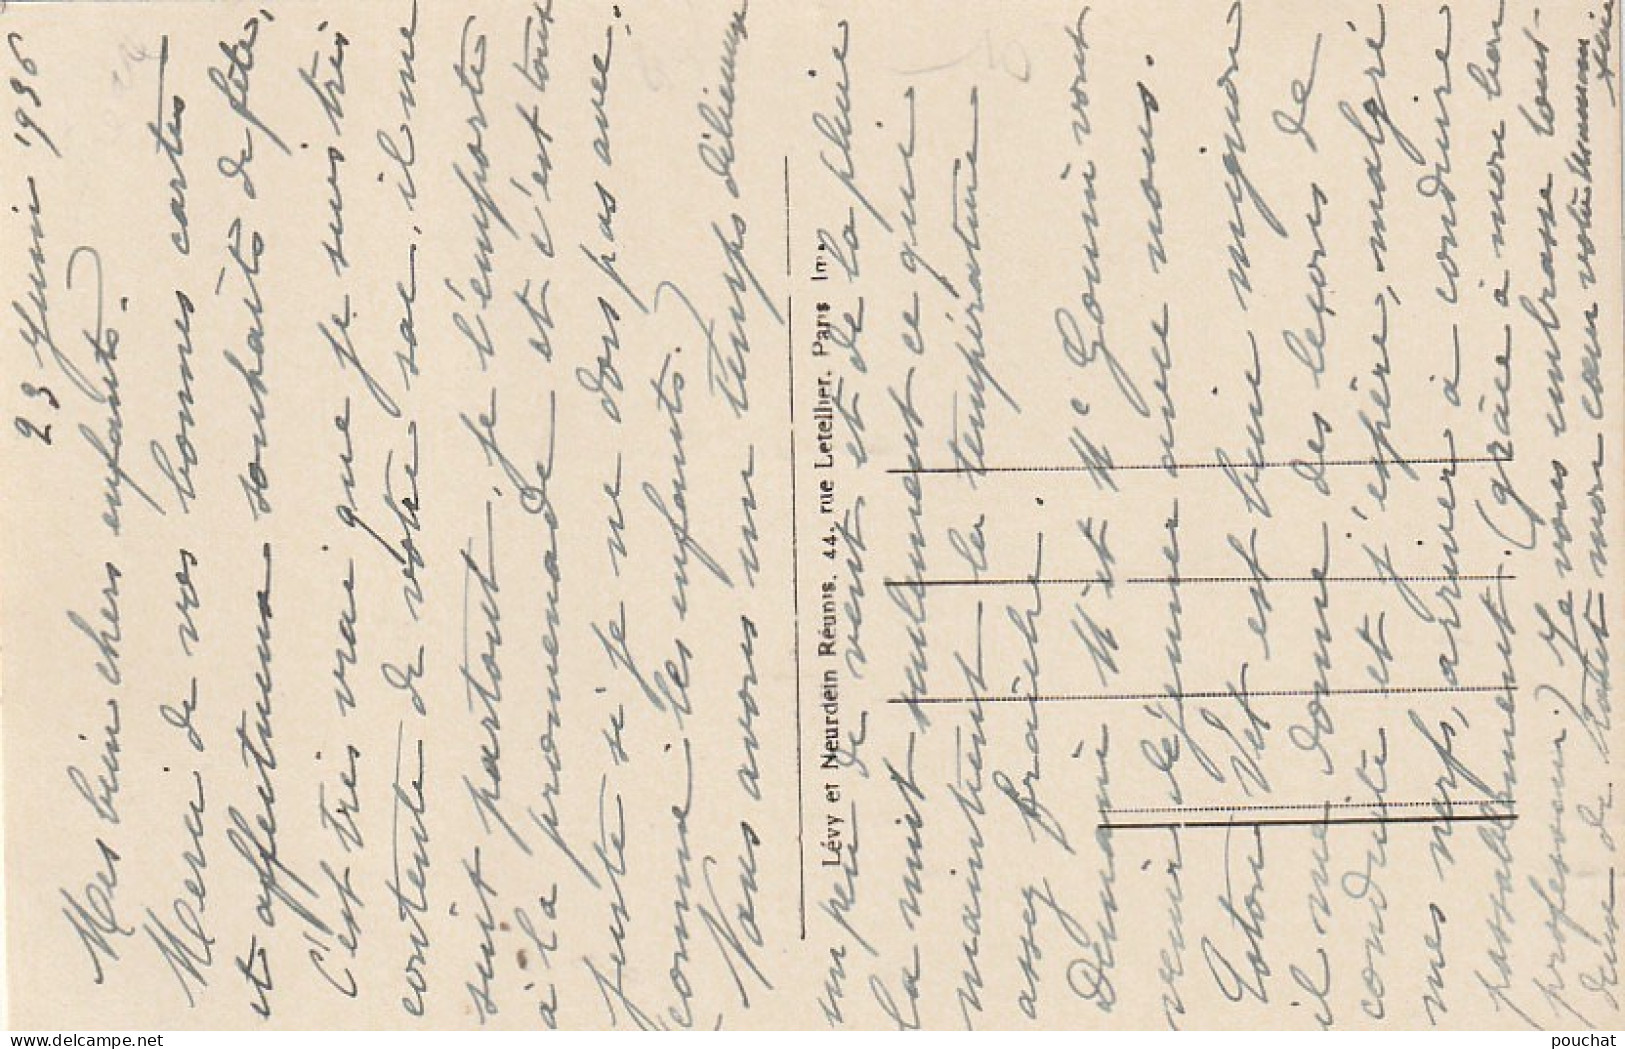 23 Juin 1936
Mes bien chers enfants.
Merci de vos bonnes cartes
et affectueux souhaits de fête,
c'est très vrai que je suis très
contente de votre sac, il me
suit partout, je l'emporte
à la promenade et c'est tout
juste si je ne dors pas avec
(comme les enfants.)
Nous avons un temps délicieux
Lévy et Neurdein Réunis. 44, rue Letellier. Paris Imp.
un peu de vent et de la pluie
la nuit seulement ce qui
maintient la température
assez fraîche.
Demain Mr et Me Gouin vont
venir déjeuner avec nous.
Toton est bien mignon
il me donne des leçons de
conduite et j'espère, malgré
mes nerfs, arriver à conduire
passablement. (grâce à mon bon
professeur.) Je vous embrasse tous
deux de tout mon cœur votre maman
delcampe.net
pouchat